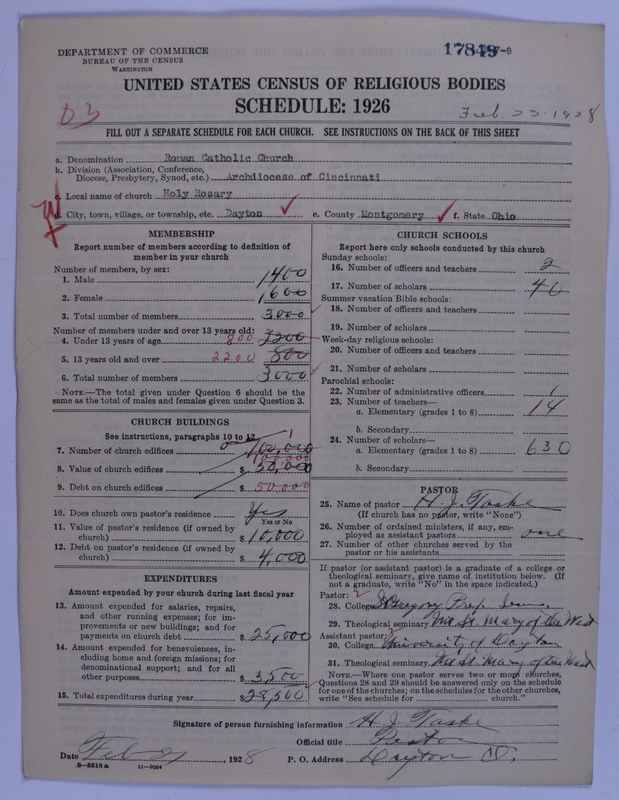 DEPARTMENT OF COMMERCE
BUREAU OF THE CENSUS
WASHINGTON
17849 -8
UNITED STATES CENSUS OF RELIGIOUS BODIES
SCHEDULE: 1926
D3
Feb. 23-1928
FILL OUT A SEPARATE SCHEDULE FOR EACH CHURCH. SEE INSTRUCTIONS ON THE BACK OF THIS SHEET
a. Denomination Roman Catholic Church
b. Division (Association, Conference,
Diocese, Presbytery, Synod, etc.) Archdiocese of Cincinnati
c. Local name of church Holy Rosary
d. City, town, village, or township, etc. Dayton e. County Montgomery f. State Ohio
MEMBERSHIP
Report number of members according to definition of
member in your church
Number of members, by sex:
1. Male 1400
2. Female 1600
3. Total number of members 3000
Number of members under and over 13 years old:
4. Under 13 years of age 800 2200
5. 13 years old and over 2200 800
6. Total number of members 3000
NOTE.—The total given under Question 6 should be
same as the total of males and females given under Question 3.
CHURCH BUILDINGS
See instructions, paragraphs 10 to 12
7. Number of church edifices 1 100,000
8. Value of church edifices $ 100,000 50,000
9. Debt on church edifices $ 50,000
10. Does church own pastor's residence? Yes
Yes or No
11. Value of pastor's residence (if owned by
church) $ 10,000
12. Debt on pastor's residence (if owned by
church) $ 4,000
EXPENDITURES
Amount expended by your church during last fiscal year
13. Amount expended for salaries, repairs,
and other running expenses; for im-
provements or new buildings; and for
payments on church debt $ 25,000
14. Amount expended for benevolences, in-
cluding home and foreign missions; for
denominational support; and for all
other purposes $ 3,500
15. Total expenditures during year $ 28,500
CHURCH SCHOOLS
Report here only schools conducted by this church
Sunday schools:
16. Number of officers and teachers 2
17. Number of scholars 40
Summer vacation Bible schools:
18. Number of officers and teachers
19. Number of scholars
Week-day religious schools:
20. Number of officers and teachers
21. Number of scholars
Parochial schools:
22. Number of administrative officers 1
23. Number of teachers—
a. Elementary (grades 1 to 8) 14
b. Secondary
24. Number of scholars—
a. Elementary (grades 1 to 8) 630
b. Secondary
PASTOR
25. Name of pastor H. J. Taske
(If church has no pastor, write "None")
26. Number of ordained ministers, if any, em-
ployed as assistant pastors one
27. Number of other churches served by the
pastor or his assistants
If pastor (or assistant pastor) is a graduate of a college or
theological seminary, give name of institution below. (If
not a graduate, write "No" in the space indicated.)
Pastor: 2
28. College St Gregory Prep. Sem.
29. Theological seminary Mt St. Mary of the West
Assistant pastor:
30. College University of Dayton
31. Theological seminary Mt St. Mary of the West
NOTE.—Where one pastor serves two or more churches,
Questions 28 and 29 should be answered only on the schedule
for one of the churches; on the schedules for the other churches,
write "See schedule for church."
Signature of person furnishing information H. J. Taske
Official title Pastor
Date Feb 21, 1928 P. O. Address Dayton O.
8—5518a 11—9034